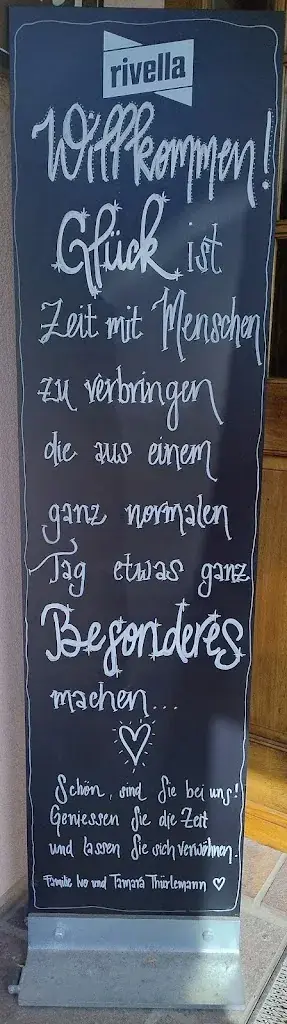 rivella
Willkommen!
Glück ist
Zeit mit Menschen
zu verbringen
die aus einem
ganz normalen
Tag etwas ganz
Besonderes
machen...
Schön, sind Sie bei uns!
Geniessen Sie die Zeit
und lassen Sie sich verwöhnen.
Familie Ivo und Tamara Thürlemann ♡